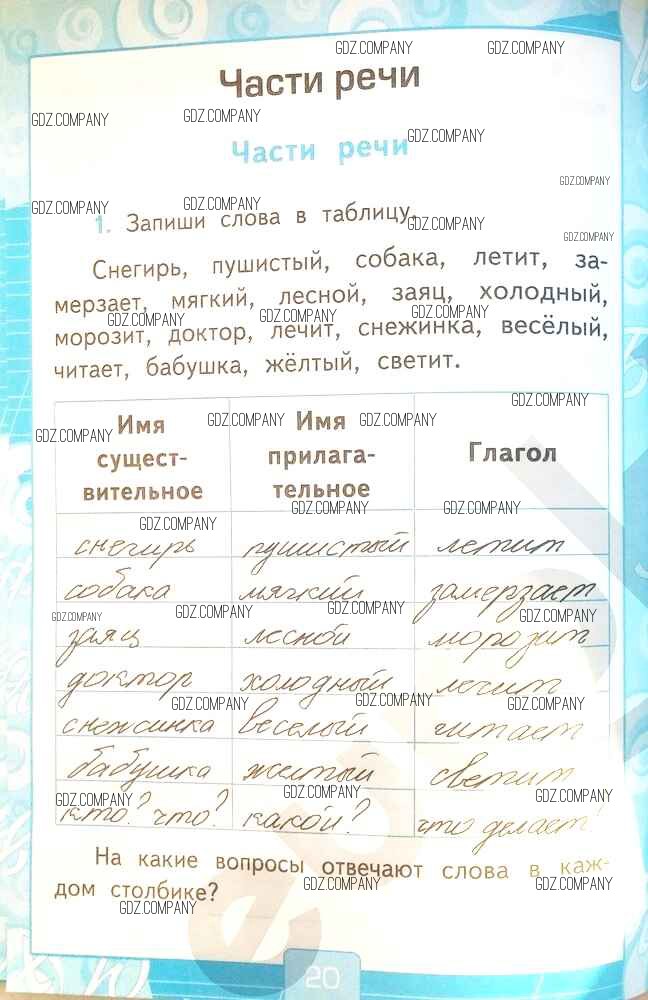 GDZ.COMPANY GDZ.COMPANY
Части речи
GDZ.COMPANY GDZ.COMPANY
GDZ.COMPANY
Части речи
GDZ.COMPANY
GDZ.COMPANY GDZ.COMPANY
1. Запиши слова в таблицу.
GDZ.COMPANY
GDZ.COMPANY
Снегирь, пушистый, собака, летит, за-
мерзает, мягкий, лесной, заяц, холодный,
GDZ.COMPANY GDZ.COMPANY GDZ.COMPANY
морозит, доктор, лечит, снежинка, весёлый,
читает, бабушка, жёлтый, светит.
GDZ.COMPANY
Имя сущест- вительное
Имя прилага- тельное
Глагол
GDZ.COMPANY GDZ.COMPANY GDZ.COMPANY
GDZ.COMPANY GDZ.COMPANY GDZ.COMPANY
снегирь пушистый летит
собака мягкий замерзает
GDZ.COMPANY GDZ.COMPANY GDZ.COMPANY GDZ.COMPANY
заяц лесной морозит
доктор холодный лечит
GDZ.COMPANY GDZ.COMPANY GDZ.COMPANY
снежинка веселый читает
бабушка желтый светит
GDZ.COMPANY GDZ.COMPANY GDZ.COMPANY
кто? что? какой? что делает?
На какие вопросы отвечают слова в каж-
дом столбике?
GDZ.COMPANY GDZ.COMPANY
GDZ.COMPANY
20